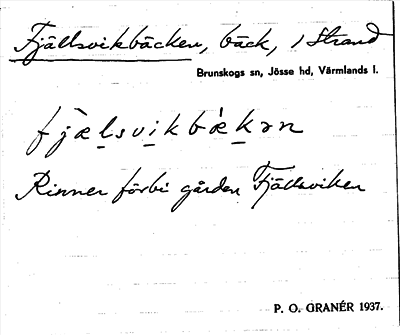 Fjällsvikbäcken, bäck, i Strand
Brunskogs sn, Jösse hd, Värmlands l.
fjælsvikbækən
Rinner förbi gården Fjällsviken
P. O. GRANÉR 1937.